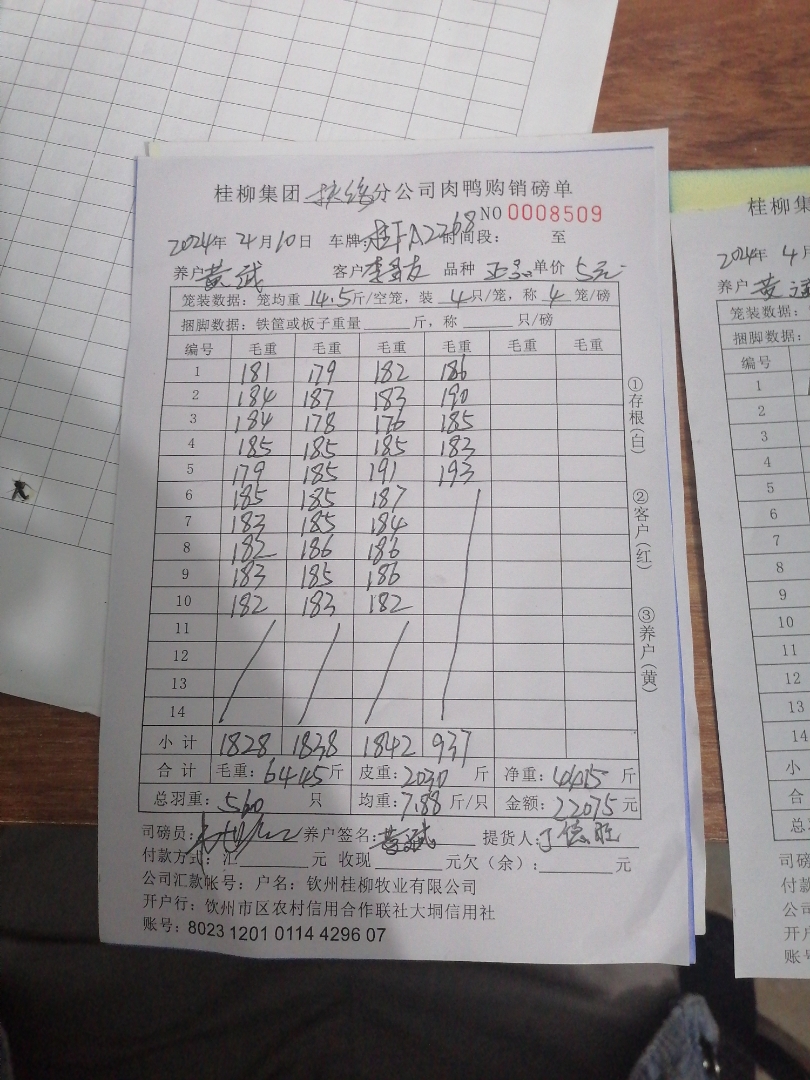 桂柳集团 扶绥 分公司肉鸭购销磅单
NO 0008509
2024年 4月 10日 车牌: 桂FA2268 时间段: 至
养户 黄斌 客户 李 友 品种 单价 5元
笼装数据：笼均重 14.5 斤/空笼，装 4 只/笼，称 4 笼/磅
捆脚数据：铁筐或板子重量 斤，称 只/磅
编号 毛重 毛重 毛重 毛重 毛重 毛重
1 181 179 182 186
2 184 187 183 190
3 184 178 176 185
4 185 185 185 183
5 179 185 191 193
6 185 185 187
7 183 185 184
8 182 186 186
9 183 185 186
10 182 183 182
11
12
13
14
小计 1828 1838 1842 937
合计 毛重：6445 斤 皮重：2030 斤 净重：4415 斤
总羽重：560 只 均重：7.88 斤/只 金额：22075 元
司磅员： 养户签名：黄斌 提货人：丁德旺
付款方式：汇 元 收现 元欠（余）： 元
公司汇款帐号：户名：钦州桂柳牧业有限公司
开户行：钦州市区农村信用合作联社大垌信用社
账号：8023 1201 0114 4296 07
①存根(白)
②客户(红)
③养户(黄)
桂柳集
2024年 4月
养户 黄
笼装数据：
捆脚数据：
编号
1
2
3
4
5
6
7
8
9
10
11
12
13
14
小
合
总
司磅
付款
公司
开户
账号